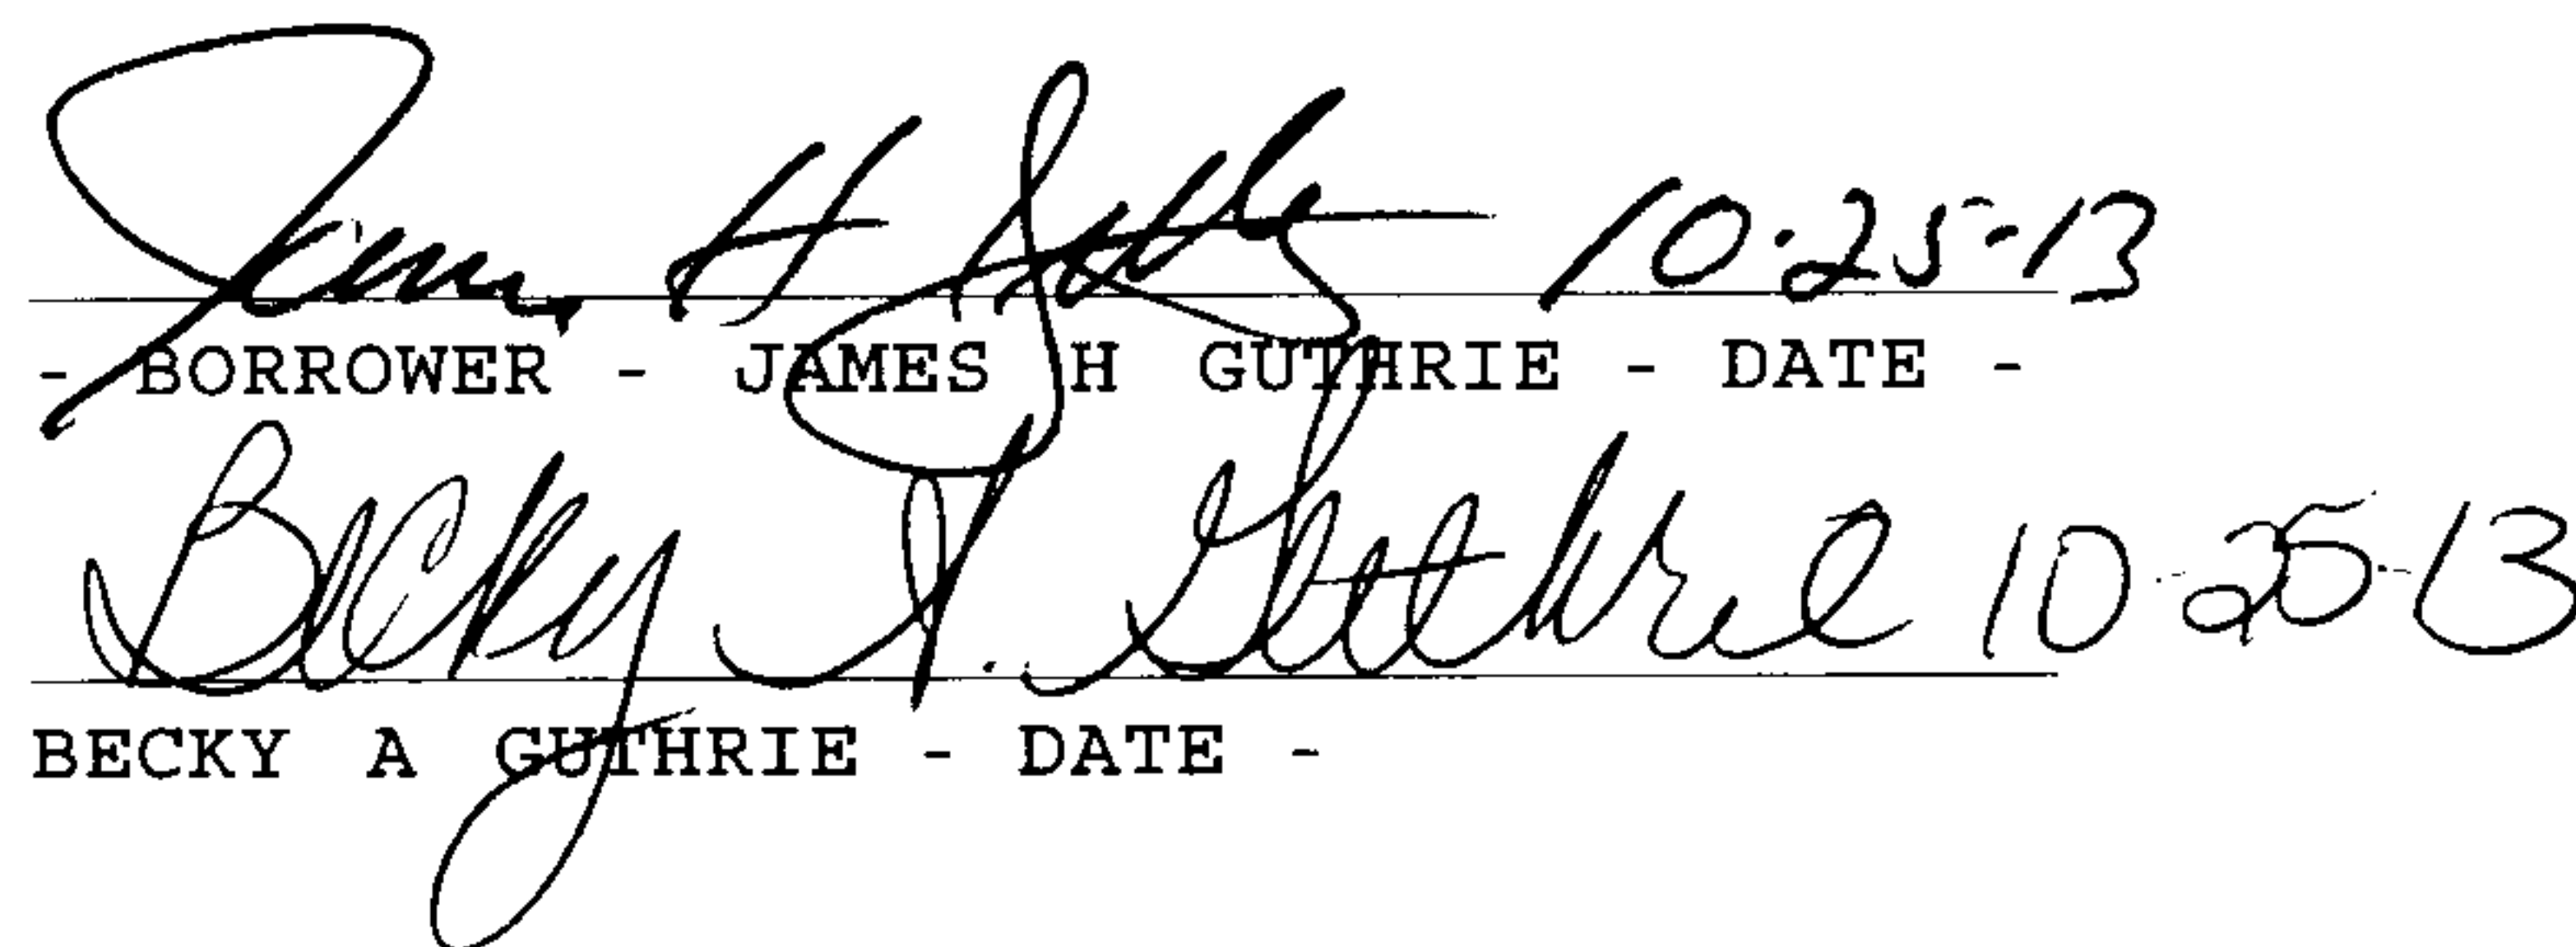 James H Guthrie 10-25-13
- BORROWER - JAMES H GUTHRIE - DATE -
Becky A. Guthrie 10-25-13
BECKY A GUTHRIE - DATE -